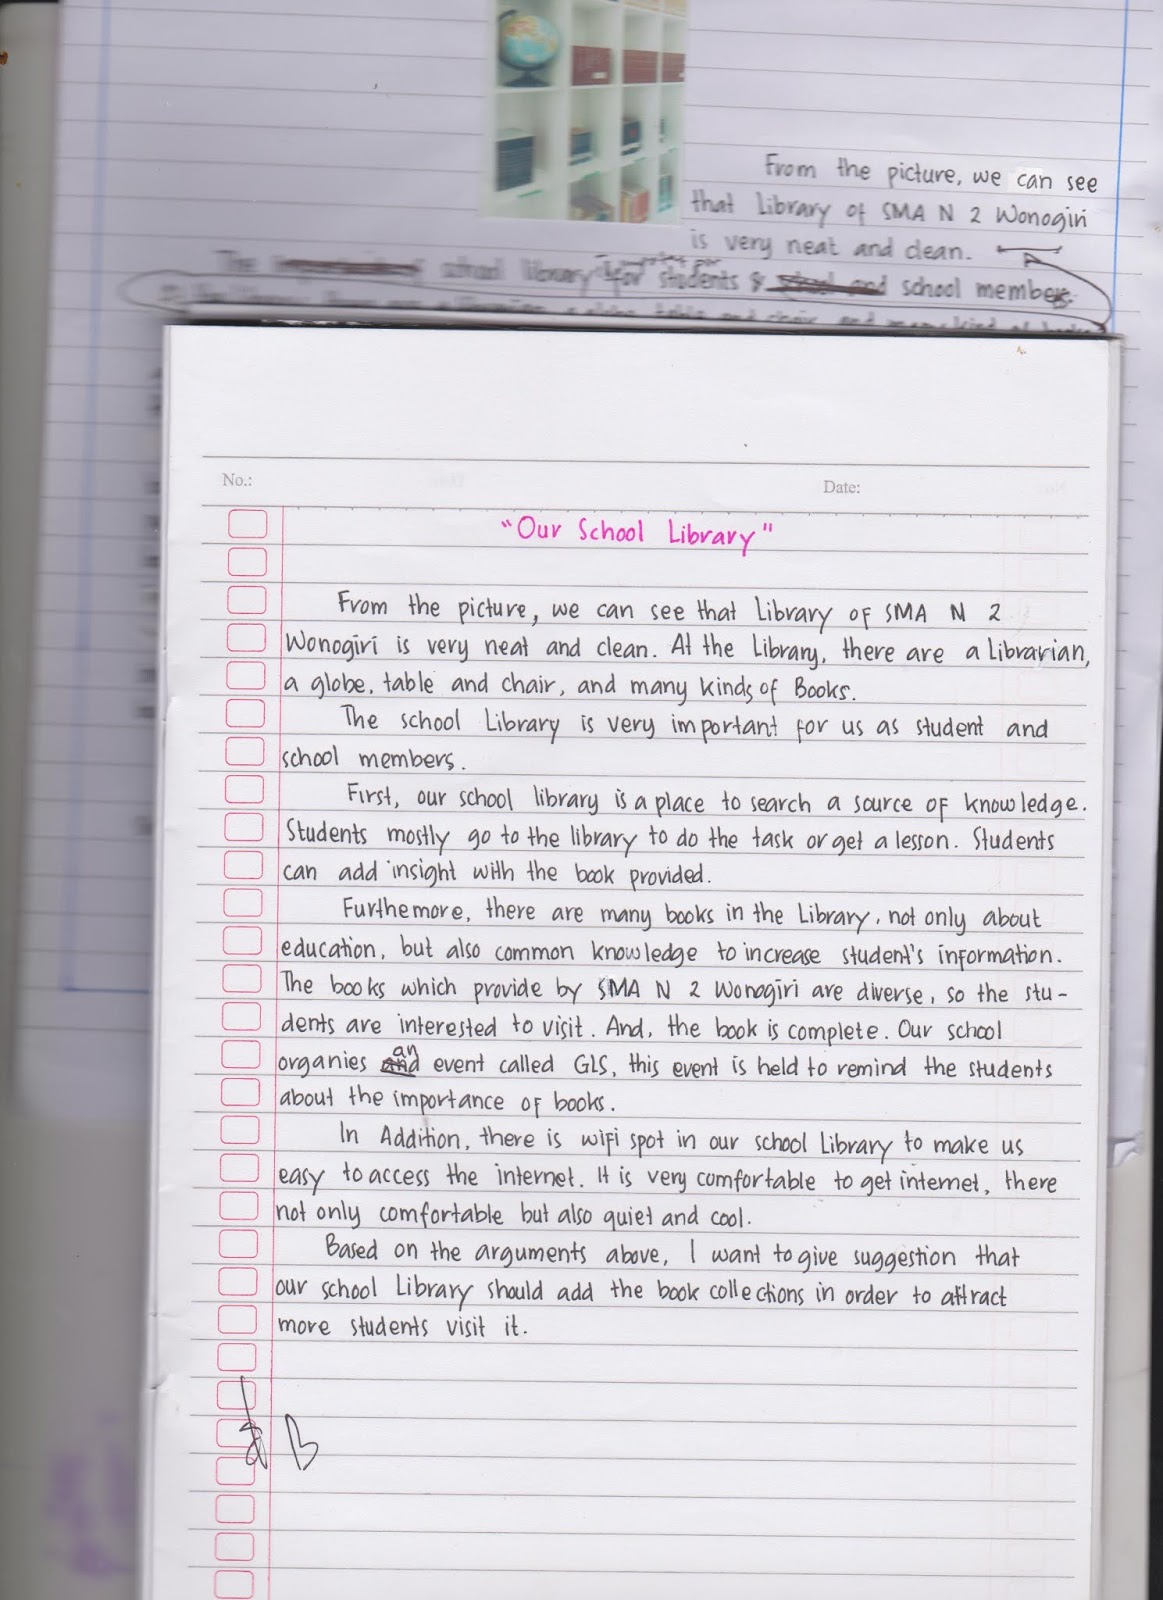 From the picture, we can see
that Library of SMA N 2 Wonogiri
is very neat and clean.
The school library important for students & school members.
No.: Date:
"Our School Library"
From the picture, we can see that Library of SMA N 2
Wonogiri is very neat and clean. At the Library, there are a Librarian,
a globe, table and chair, and many kinds of Books.
The school Library is very important for us as student and
school members.
First, our school library is a place to search a source of knowledge.
Students mostly go to the library to do the task or get a lesson. Students
can add insight with the book provided.
Furthemore, there are many books in the Library, not only about
education, but also common knowledge to increase student's information.
The books which provide by SMA N 2 Wonogiri are diverse, so the stu-
dents are interested to visit. And, the book is complete. Our school
organies an event called GLS, this event is held to remind the students
about the importance of books.
In Addition, there is wifi spot in our school Library to make us
easy to access the internet. It is very comfortable to get internet, there
not only comfortable but also quiet and cool.
Based on the arguments above, I want to give suggestion that
our school Library should add the book collections in order to attract
more students visit it.